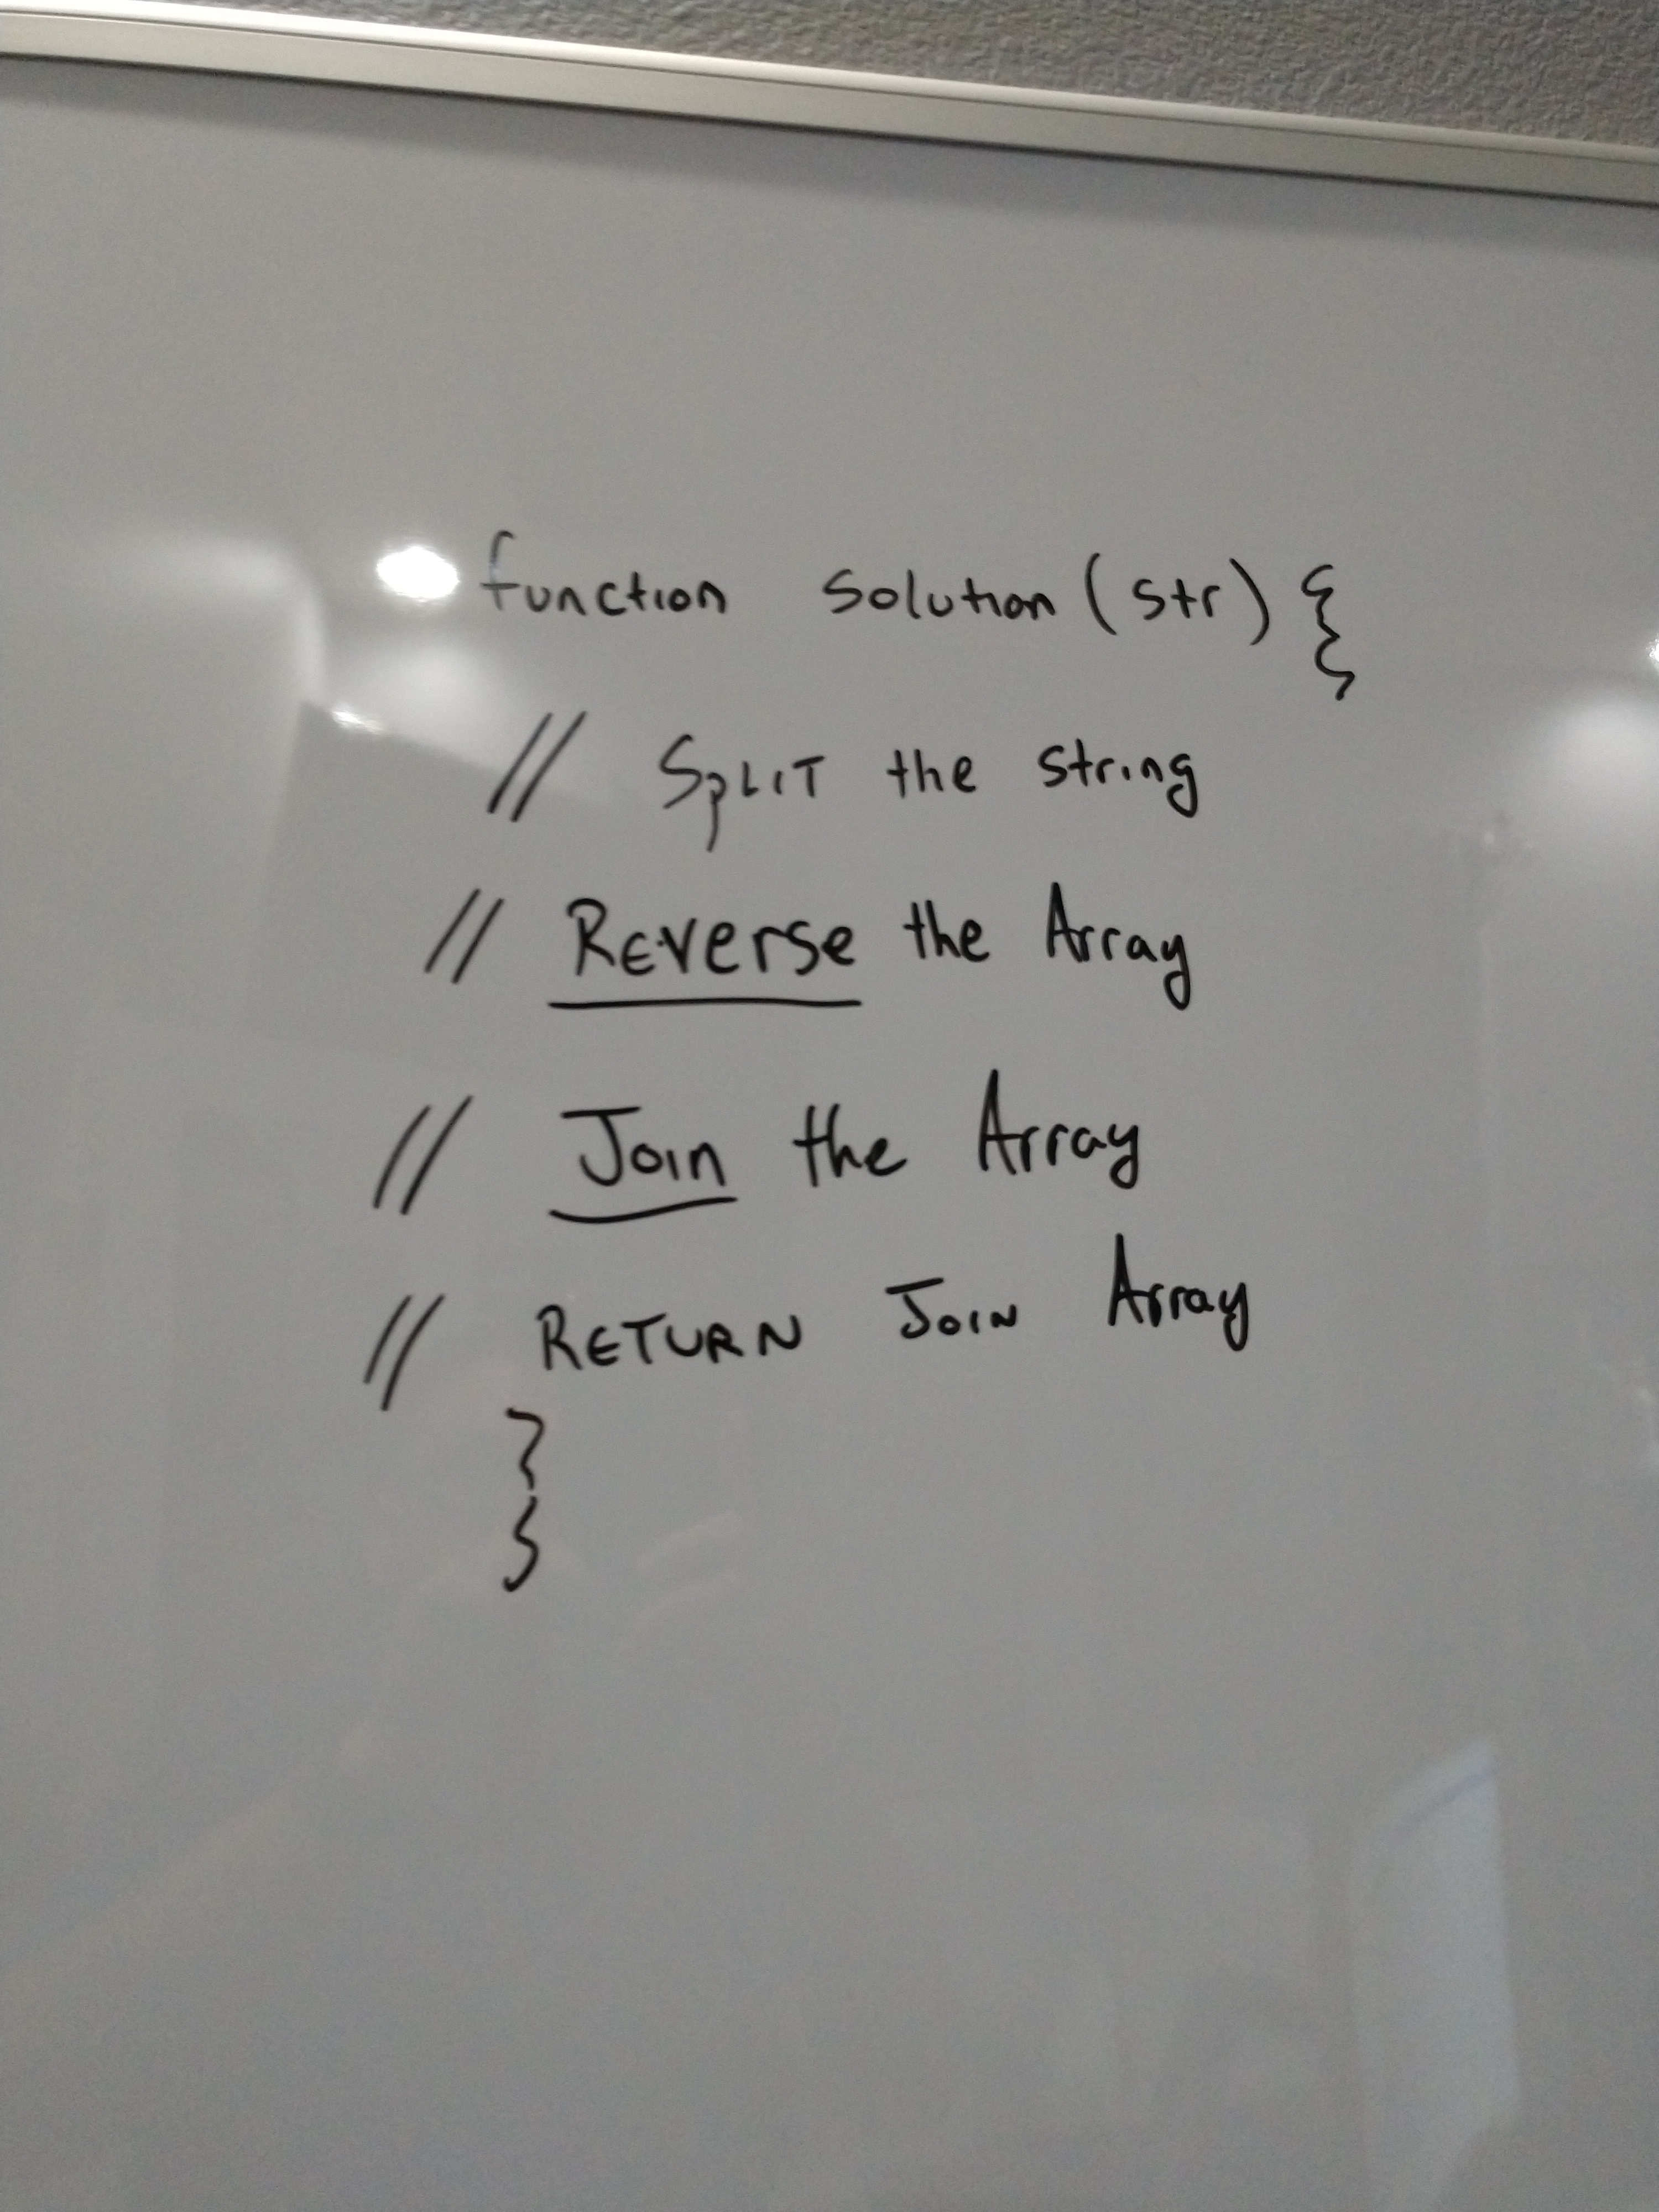 function solution (str) {
// SPLIT the string
// Reverse the Array
// Join the Array
// RETURN JOIN Array
}